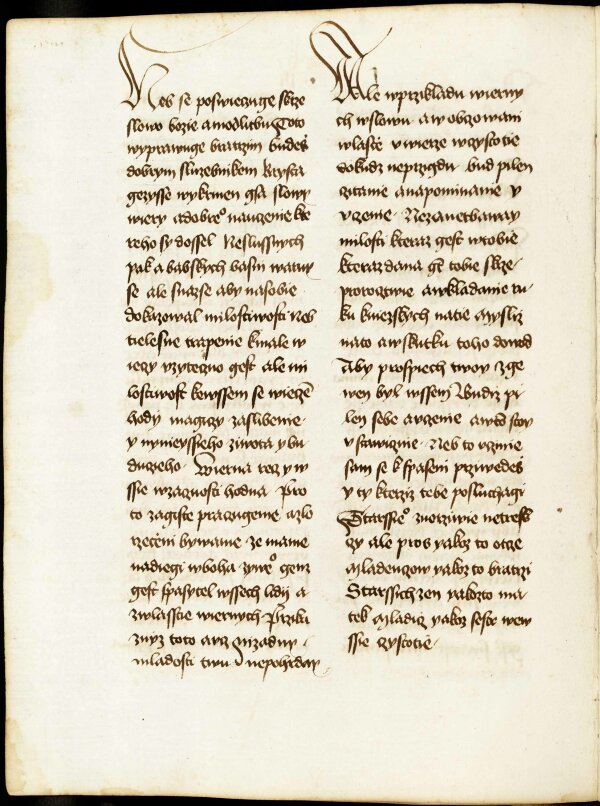 Neb se poswieczuge skrze
slowo bozie a modlitbu Toto
wyprawuge bratrzim budeš
dobrym sluzebnikem krysta
gezysse wykrmen gsa slowy
wiery a dobreº nauczenie kte
reho sy dossel Neslussnych
pak a babskych basni waruy
se ale snazse aby na sobie
dokazowal milostiwosti Neb
tielesne trapenie kmale w
ieczy vzytecno gest ale mi
lostiwost kewssem se wieczē
hody magiczy zaslibenie
y nynieyssieho ziwota y bu
duczieho Wierna rzecz y w
ssie wzacnosti hodna Pro
to zagiste praczugeme a zlo
rzeczeni bywame ze mame
nadiegi w boha zyweº genz
gest spasytel wssech lidij a
zwlasstie wiernych Przika
zuyz toto a ucz Nizadny
mladosti twu nepohrday
Ale w przikladu wierny
ch w slowu a w obczowani
w lasce v wierze w czystotie
dokudz neprzigdu bud pilen
czitanie a napominanie y
vczenie Nezanetbaway
milosti kteraz gest w tobie
kteraz dana gē tobie skrze
prorocztwie a wkladanie ru
ku knezskych na tie Mysliz
na to a w skutku toho dowod
Aby prospiech twoy zge
wen byl wssem Budiz pi
len sebe a vczenie a w tō stoy
v stawiczne Neb to vczinie
sam se k spaseni przwedeš
y ty kterziz tebe posluchagi
Starssieº zurziwie netresk
czy ale pros yakoz to otcze
Mladenczow yakoz to bratrzi
Starssich zen yakozto ma
tek Mladicz yakoz sestr wew
ssie czystotie